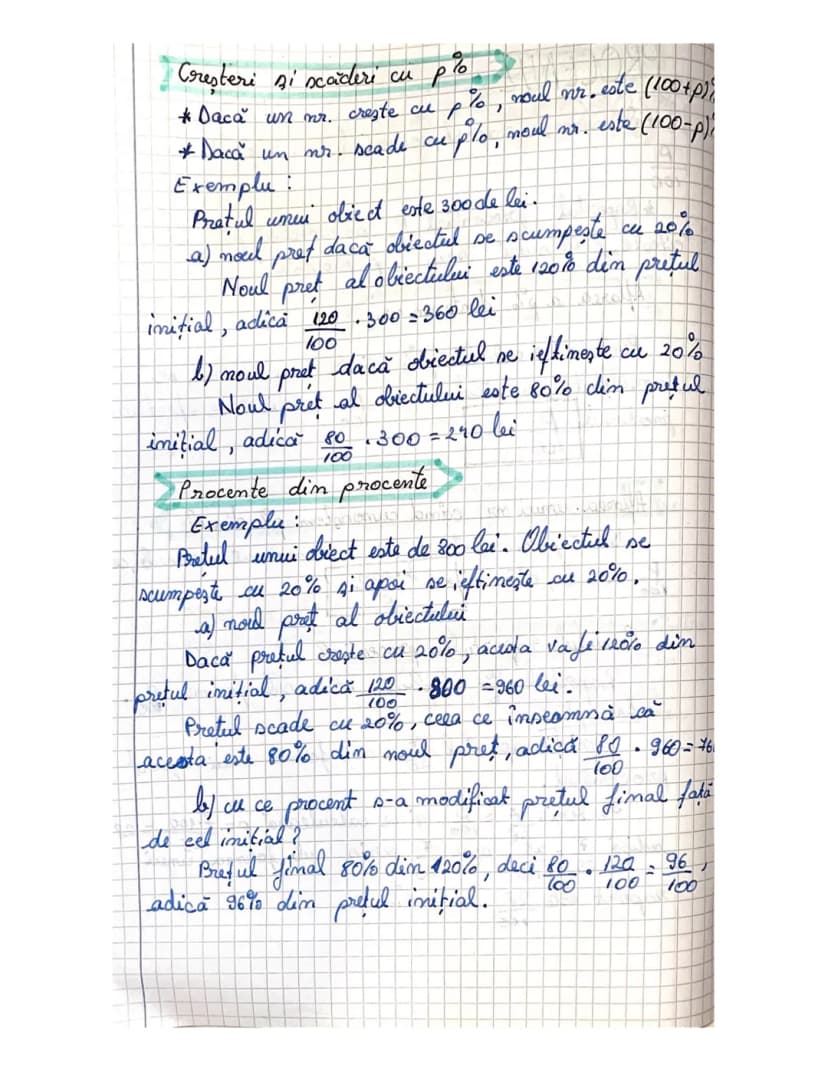 Creșteri și scăderi cu p%
* Dacă un nr. crește cu p%, noul nr. este (100+p)%
* Dacă un nr. scade cu p%, noul nr. este (100-p)%
Exemplu:
Prețul unui obiect este 300 de lei.
a) noul preț dacă obiectul se scumpește cu 20%
Noul preț al obiectului este 120% din prețul
inițial, adică 120/100 · 300 = 360 lei
b) noul preț dacă obiectul se ieftinește cu 20%
Noul preț al obiectului este 80% din prețul
inițial, adică 80/100 · 300 = 240 lei
Procente din procente
Exemplu:
Prețul unui obiect este de 800 lei. Obiectul se
scumpește cu 20% și apoi se ieftinește cu 20%.
a) noul preț al obiectului
Dacă prețul crește cu 20%, acesta va fi 120% din
prețul inițial, adică 120/100 · 800 = 960 lei.
Prețul scade cu 20%, ceea ce înseamnă că
acesta este 80% din noul preț, adică 80/100 · 960 = 76
b) cu ce procent s-a modificat prețul final față
de cel inițial?
Prețul final 80% din 120%, deci 80/100 · 120/100 = 96/100,
adică 96% din prețul inițial.